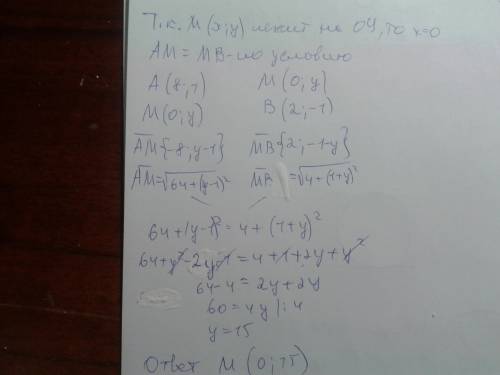 Т.к. M(x;y) лежит на OY, то x=0
AM = MB - по условию
A(8;1) M(0;y)
M(0;y) B(2;-1)
AM{-8;y-1} MB{2;-1-y}
AM=√64+(y-1)² MB=√4+(1+y)²
64+(y-1)²=4+(1+y)²
64+y²-2y+1=4+1+2y+y²
64-4=2y+2y
60=4y |:4
y=15
Ответ M(0;15)